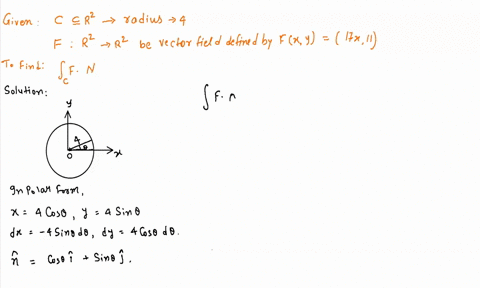 Given: C ⊆ R² → radius → 4
F : R² → R² be vector field defined by F(x, y) = (17x, 11)
To Find: ∫_C F. N
Solution:
∫ F. n
y
4
θ
O
x
In Polar Form,
x = 4 Cosθ, y = 4 Sinθ
dx = -4 Sinθ dθ, dy = 4 Cosθ dθ.
n̂ = Cosθ î + Sinθ ĵ.